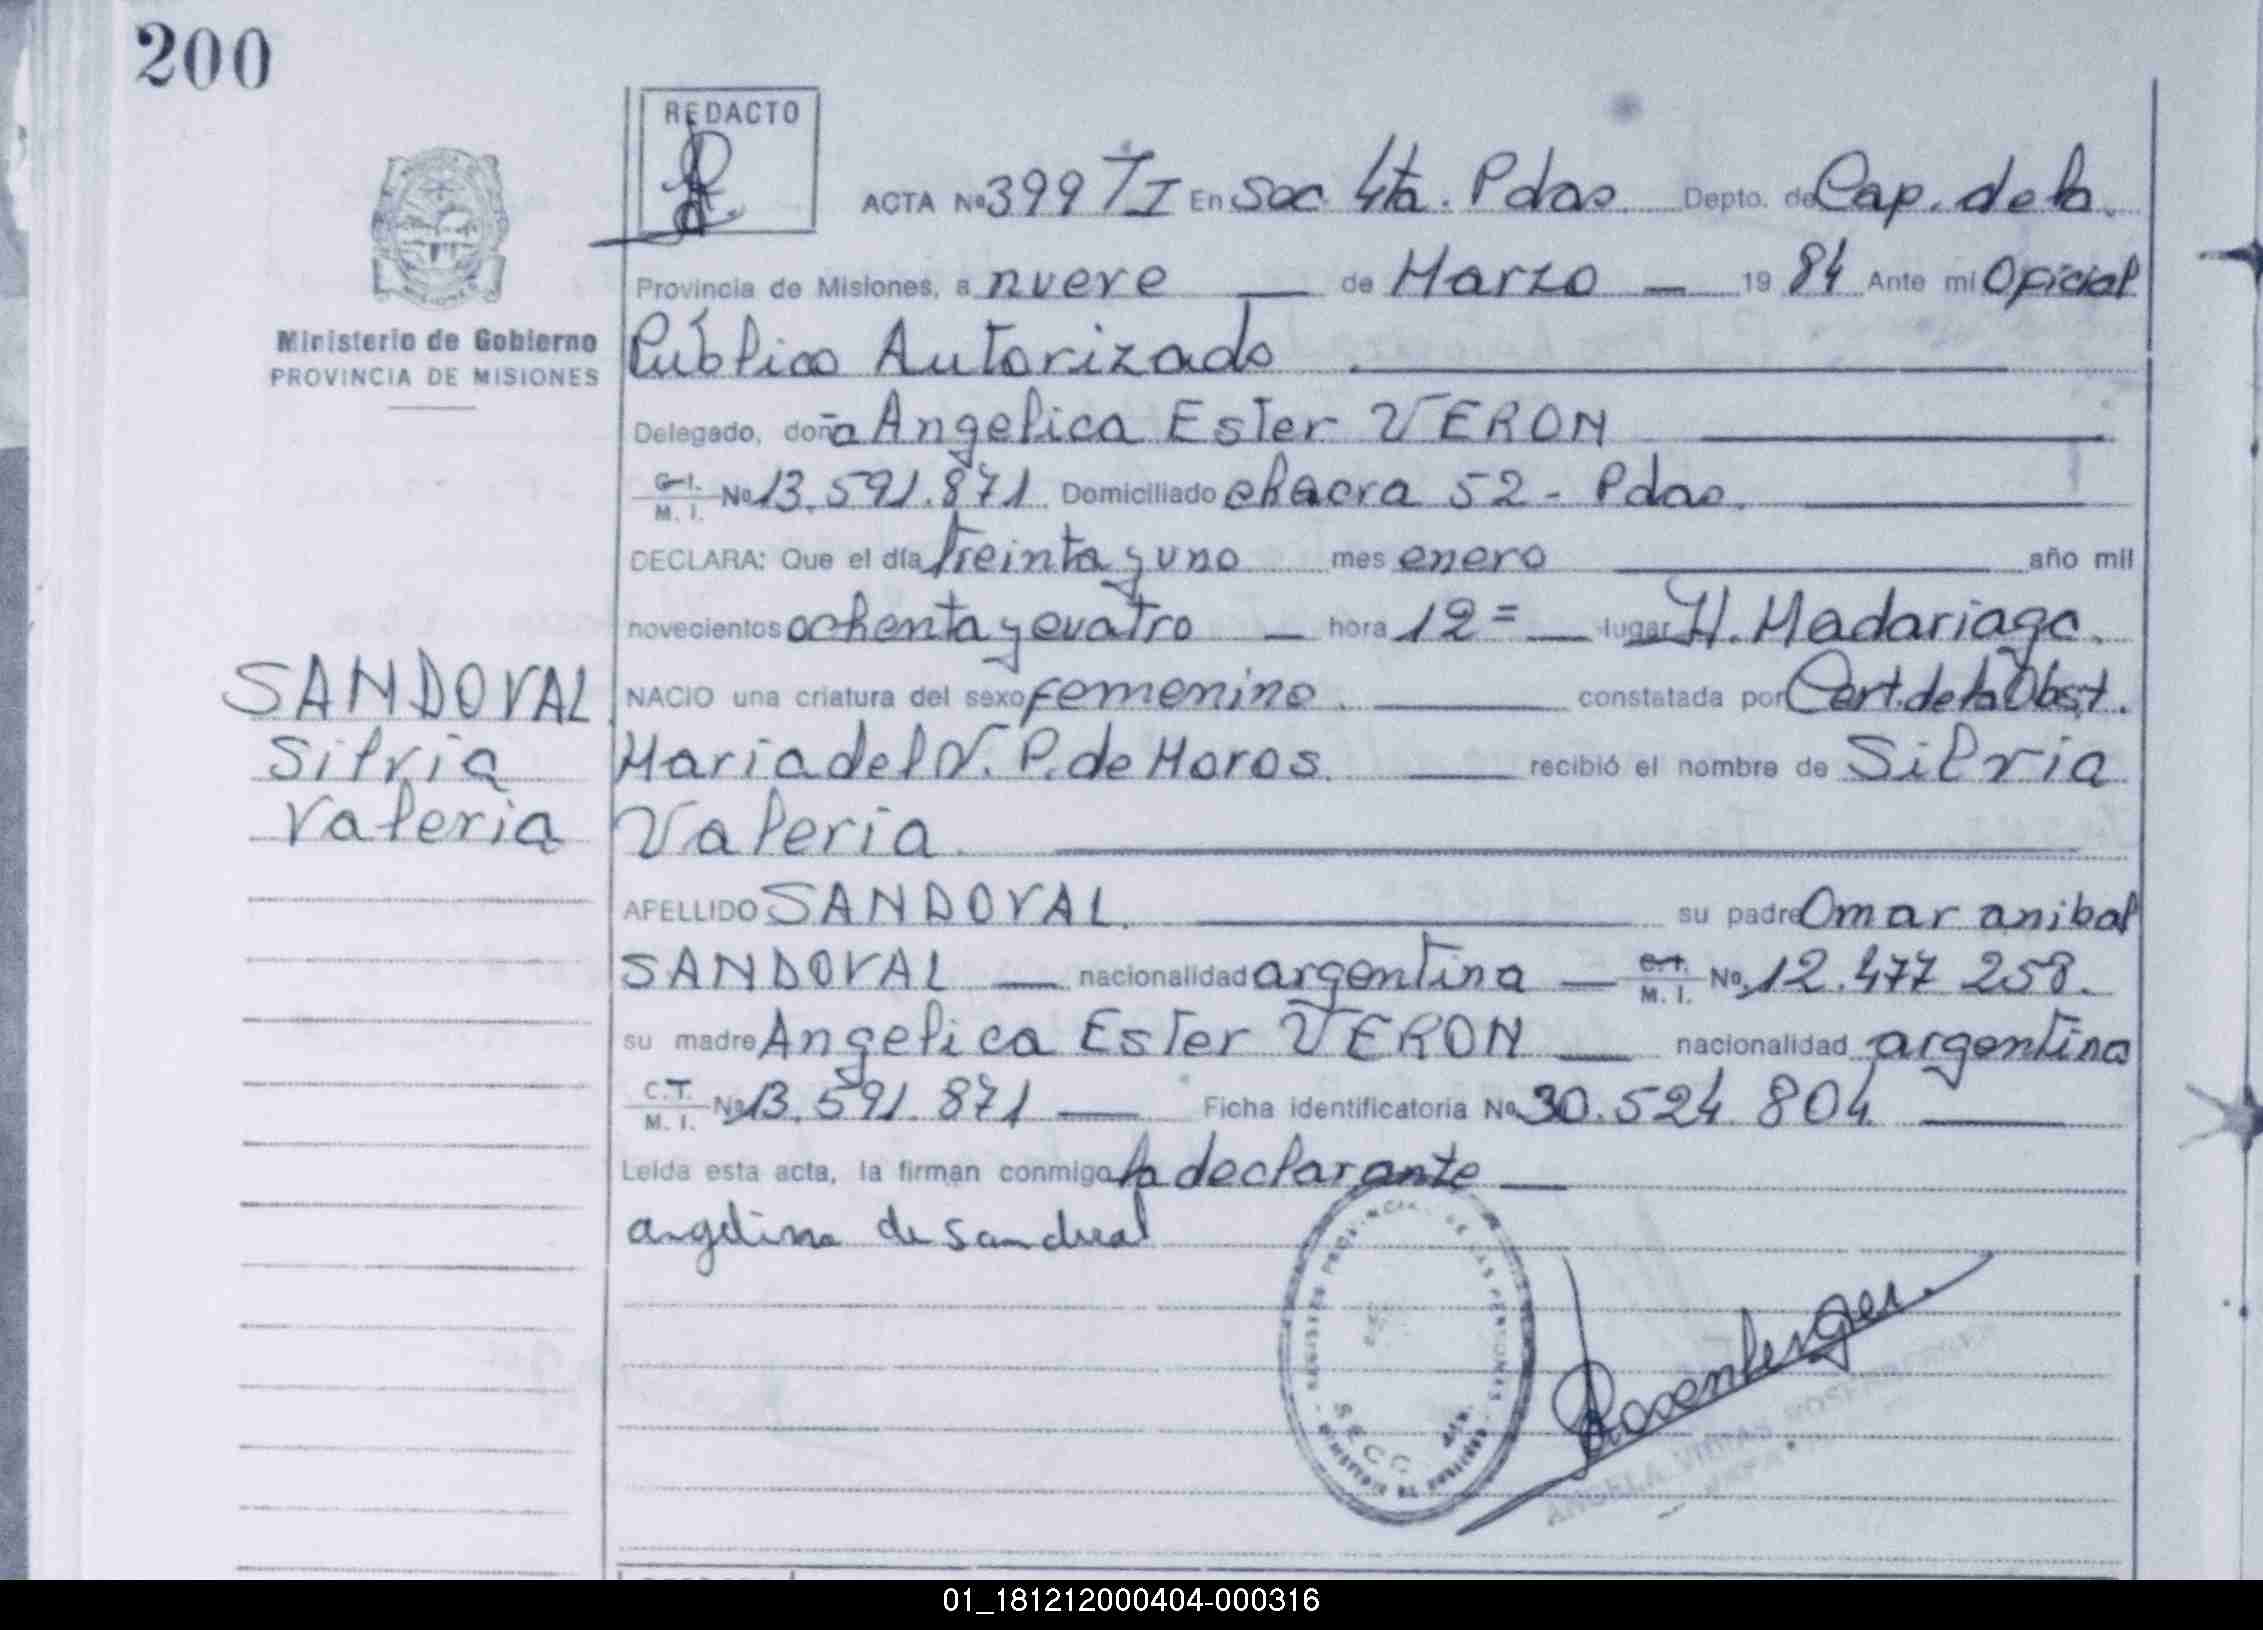 200
REDACTO
ACTA Nº 399 TI En Sec. 4ta. Pdas. Depto. de Cap. de la
Provincia de Misiones, a nueve de Marzo 19 84 Ante mi Oficial
Ministerio de Gobierno
PROVINCIA DE MISIONES
Público Autorizado
Delegado, doña Angelica Ester VERON
C.I. M. I. Nº 13.591.871 Domiciliado chacra 52 - Pdas.
DECLARA: Que el día treinta y uno mes enero año mil
novecientos ochenta y cuatro hora 12= lugar H. Madariaga.
SANDOVAL
Silvia
Valeria
NACIO una criatura del sexo femenino. constatada por Cert. de la Obst.
Maria del V. P. de Moros. recibió el nombre de Silvia
Valeria.
APELLIDO SANDOVAL. su padre Omar anibal
SANDOVAL nacionalidad argentina C.I. M. I. Nº 12.477 258.
su madre Angelica Ester VERON nacionalidad argentina
C.I. M. I. Nº 13.591.871 Ficha identificatoria Nº 30.524.804
Leida esta acta, la firman conmigo la declarante
de Sandoval
REGISTRO PROVINCIAL DE LAS PERSONAS
SECC
Rosenberger
ANGELA
01_181212000404-000316